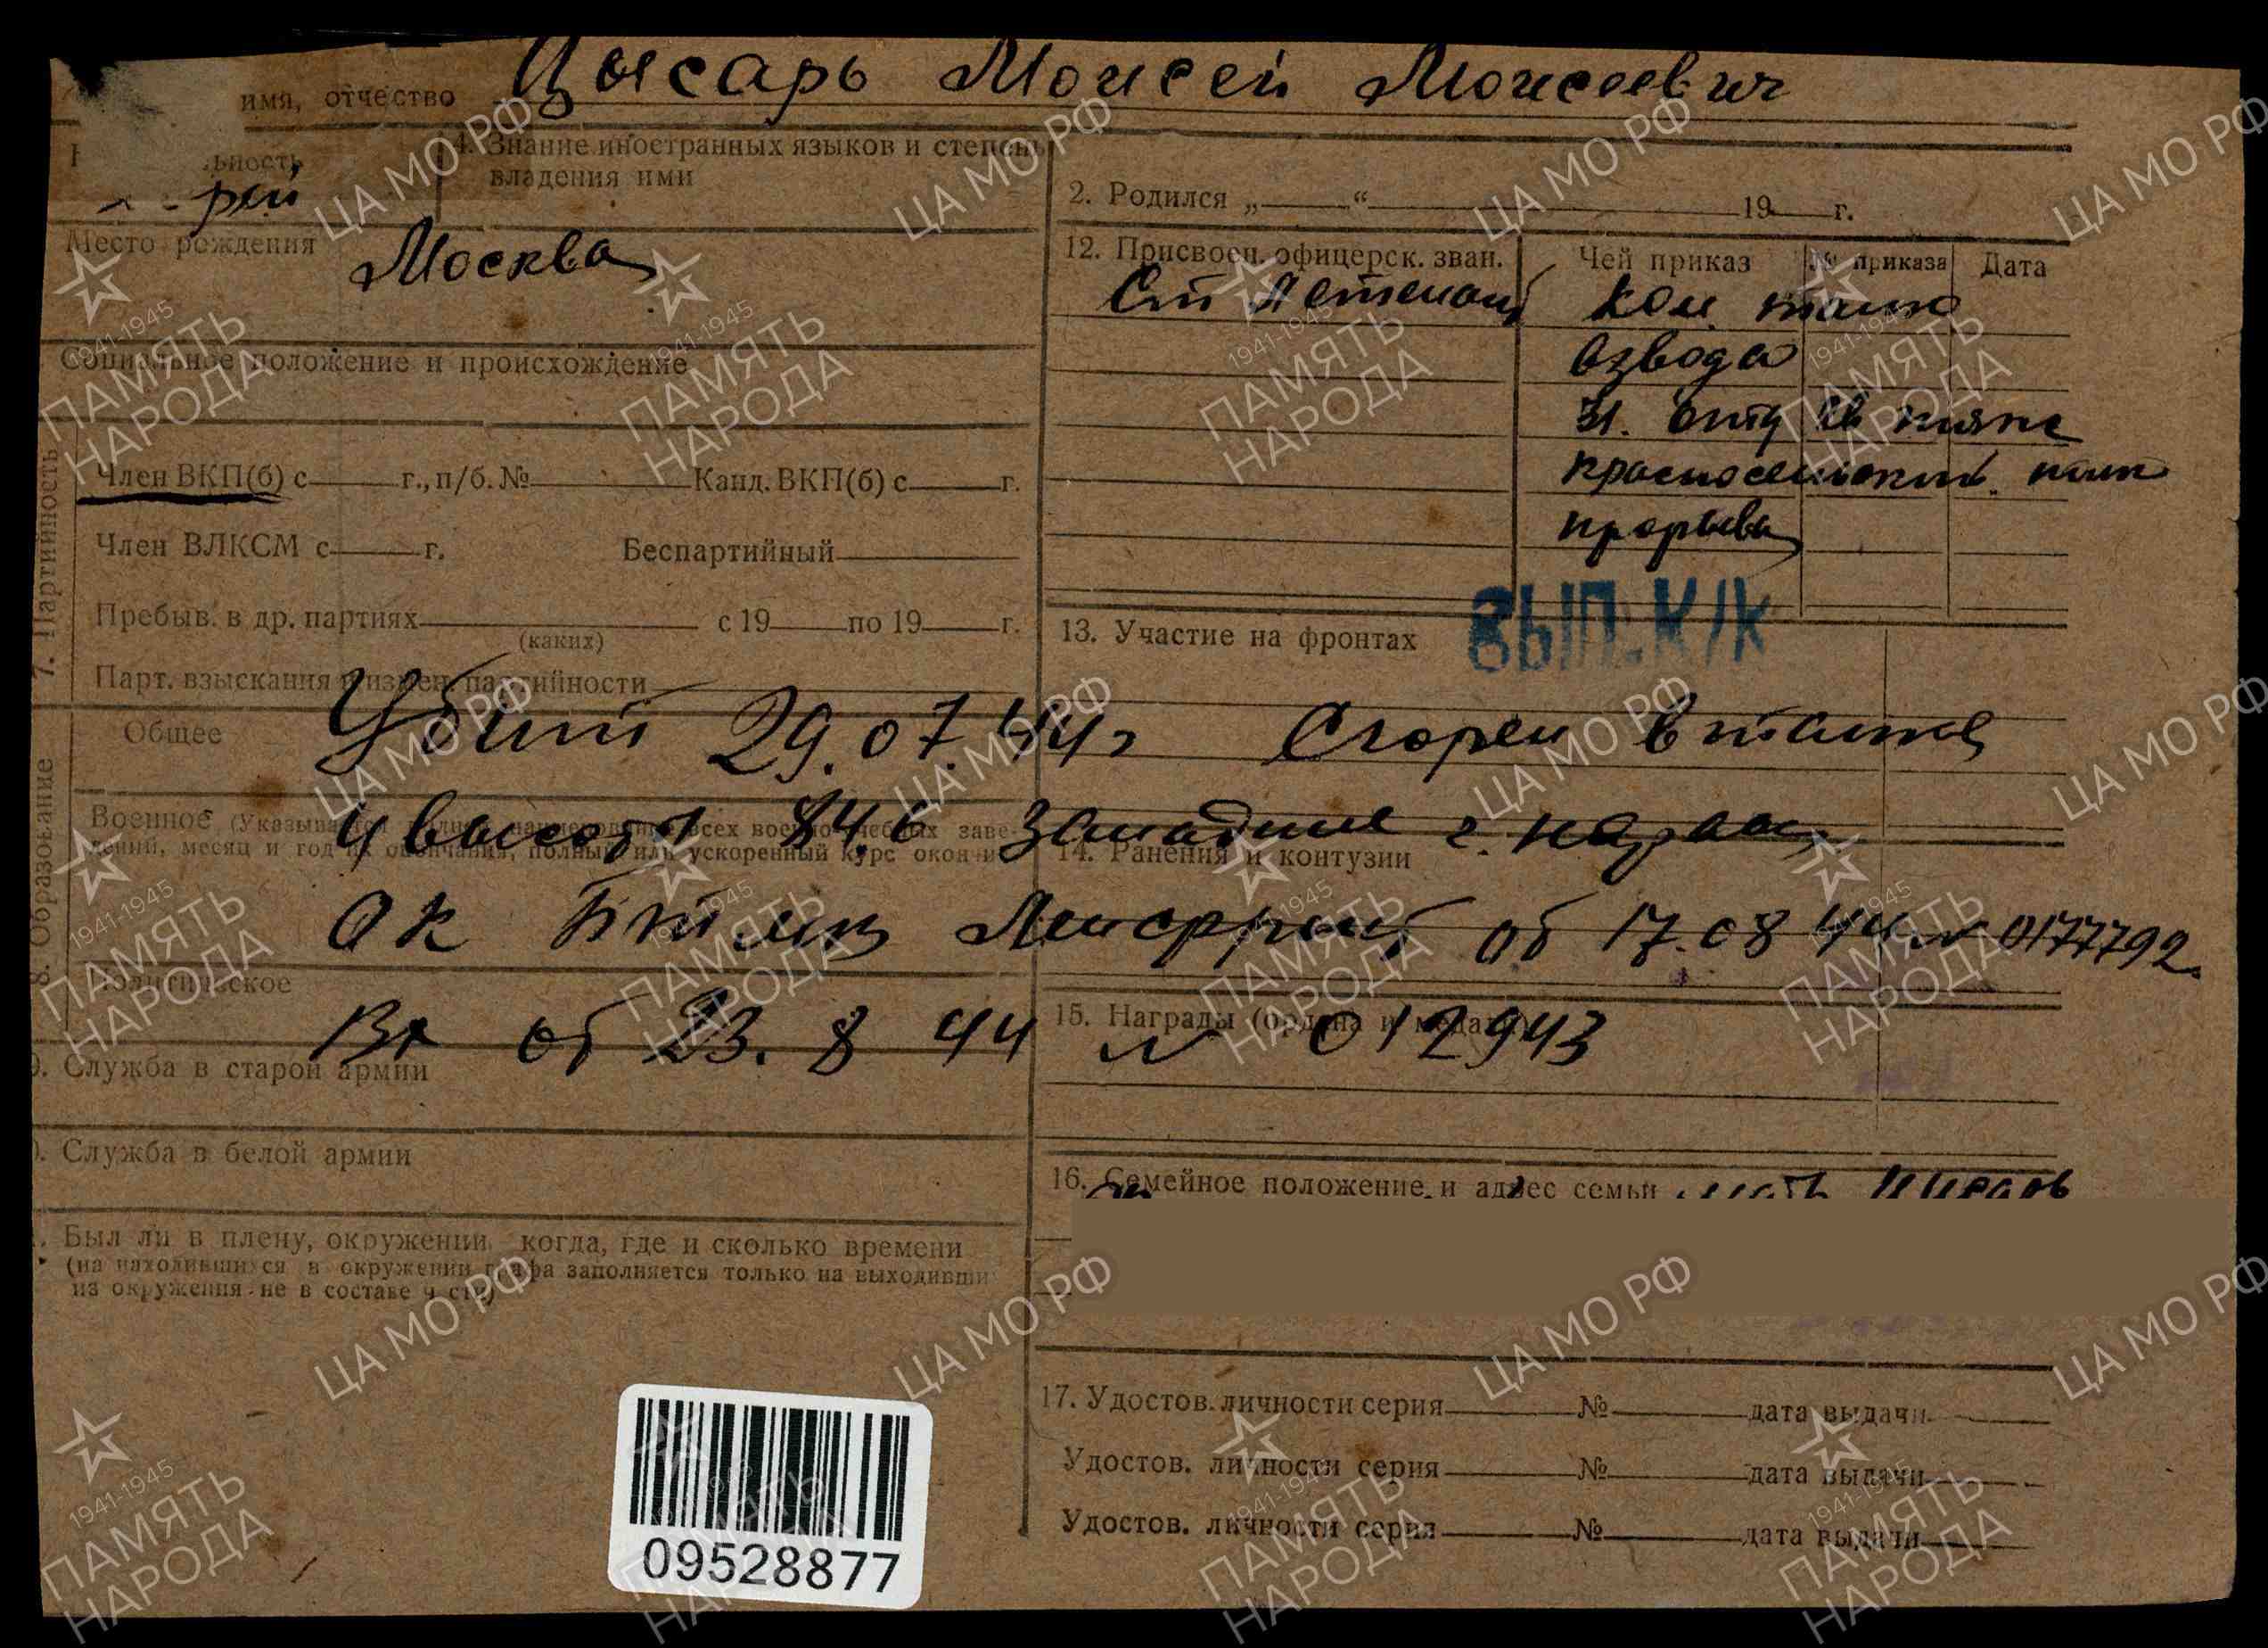 имя, отчество Цысарь Моисей Моисеевич
4. Знание иностранных языков и степень
владения ими
ьность
рей
2. Родился „ “ 19 г.
Место рождения Москва
12. Присвоен. офицерск. зван. Чей приказ № приказа Дата
Ст Летенант Ком. танко
взвода
31. отд гв тяже
красносельский. полк
прорыва
Социальное положение и происхождение
7. Партийность
Член ВКП(б) с г., п/б. № Канд. ВКП(б) с г.
Член ВЛКСМ с г. Беспартийный
Пребыв. в др. партиях с 19 по 19 г.
(каких)
Парт. взыскания и измен. партийности
13. Участие на фронтах ВЫП. К/К
8. Образование
Общее
Убит 29.07.44г Сгорел в танке
Военное (Указывается всех военно-учебных заве-
дений, месяц и год их окончания, полный или ускоренный курс окончил
У высоты 84.6 Западнее г. Нарвы
14. Ранения и контузии
ОК БТ и МВ Ленфронт об 17.08 44 № 0177792.
Политическое
Вх от 23. 8 44 № 012943
15. Награды (ордена и медали)
. Служба в старой армии
. Служба в белой армии
16. Семейное положение и адрес семьи мать Цысарь
. Был ли в плену, окружении, когда, где и сколько времени
(на находившихся в окружении графа заполняется только на выходивши
из окружения не в составе части)
17. Удостов. личности серия № дата выдачи
Удостов. личности серия № дата выдачи
Удостов. личности серия № дата выдачи
09528877
ЦА МО РФ
1941-1945
ПАМЯТЬ
НАРОДА